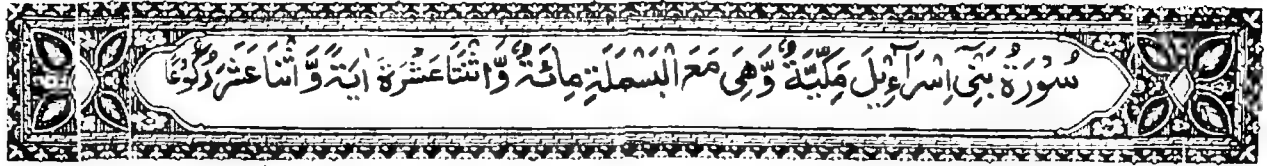 سُوْرَةُ بَنِيْۤ اِسْرَآءِيْلَ مَكِّيَّةٌ وَّهِيَ مَعَ الْبَسْمَلَةِ مِائَةٌ وَّاثْنَتَا عَشْرَةَ اٰيَةً وَّاثْنَا عَشَرَ رُكُوْعًا